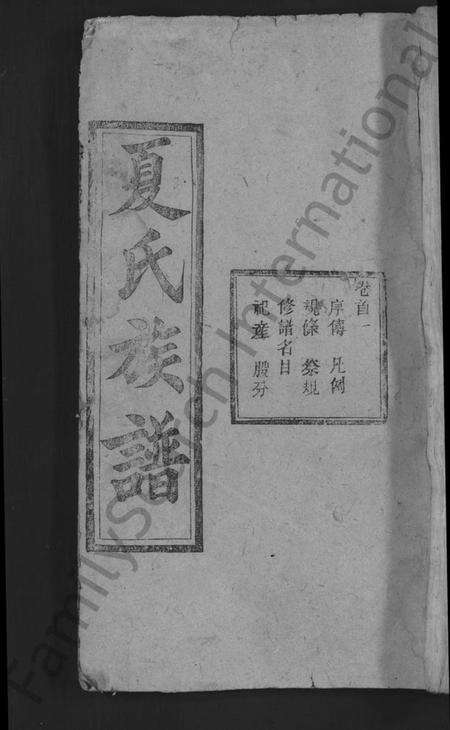 卷首一
序傳 凡例
規條 祭規
修譜名目
祀產 股分
夏氏族譜
FamilySearch International